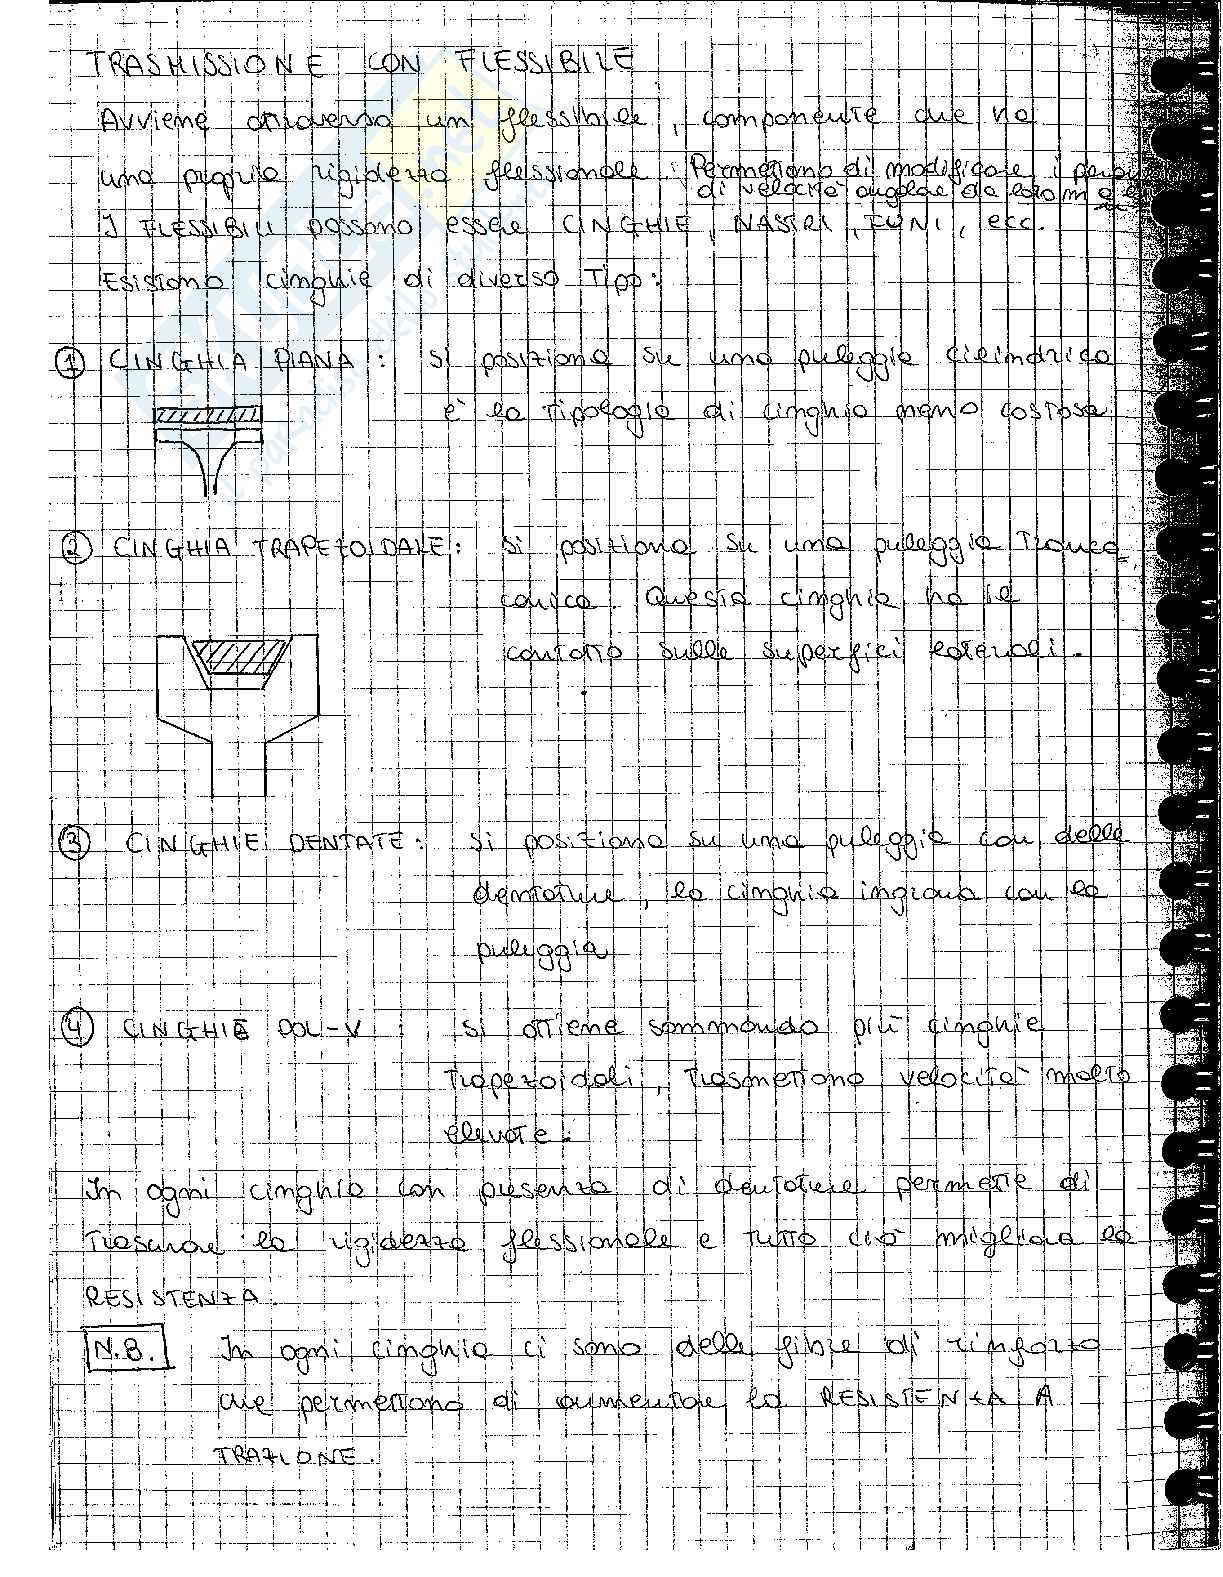 TRASMISSIONE CON FLESSIBILE
Avviene attraverso un flessibile, componente che ha
una propria rigidezza flessionale. Permettono di modificare i
di velocità angolare da
I FLESSIBILI possono essere CINGHIE, NASTRI, FUNI, ecc.
Esistono cinghie di diverso tipo:
① CINGHIA PIANA: si posiziona su una puleggia cilindrica
è la tipologia di cinghia meno costosa
② CINGHIA TRAPEZOIDALE: si posiziona su una puleggia tronco
conica. Questa cinghia ha il
contatto sulle superfici laterali.
③ CINGHIE DENTATE: si posiziona su una puleggia con delle
dentature, la cinghia ingrana con la
puleggia
④ CINGHIE POL-V: si ottiene sommando più cinghie
trapezoidali, trasmettono velocità molto
elevate.
In ogni cinghia con presenza di dentature permette di
trascurare la rigidezza flessionale e tutto ciò migliora la
RESISTENZA.
N.B. In ogni cinghia ci sono delle fibre di rinforzo
che permettono di aumentare la RESISTENZA A
TRAZIONE.